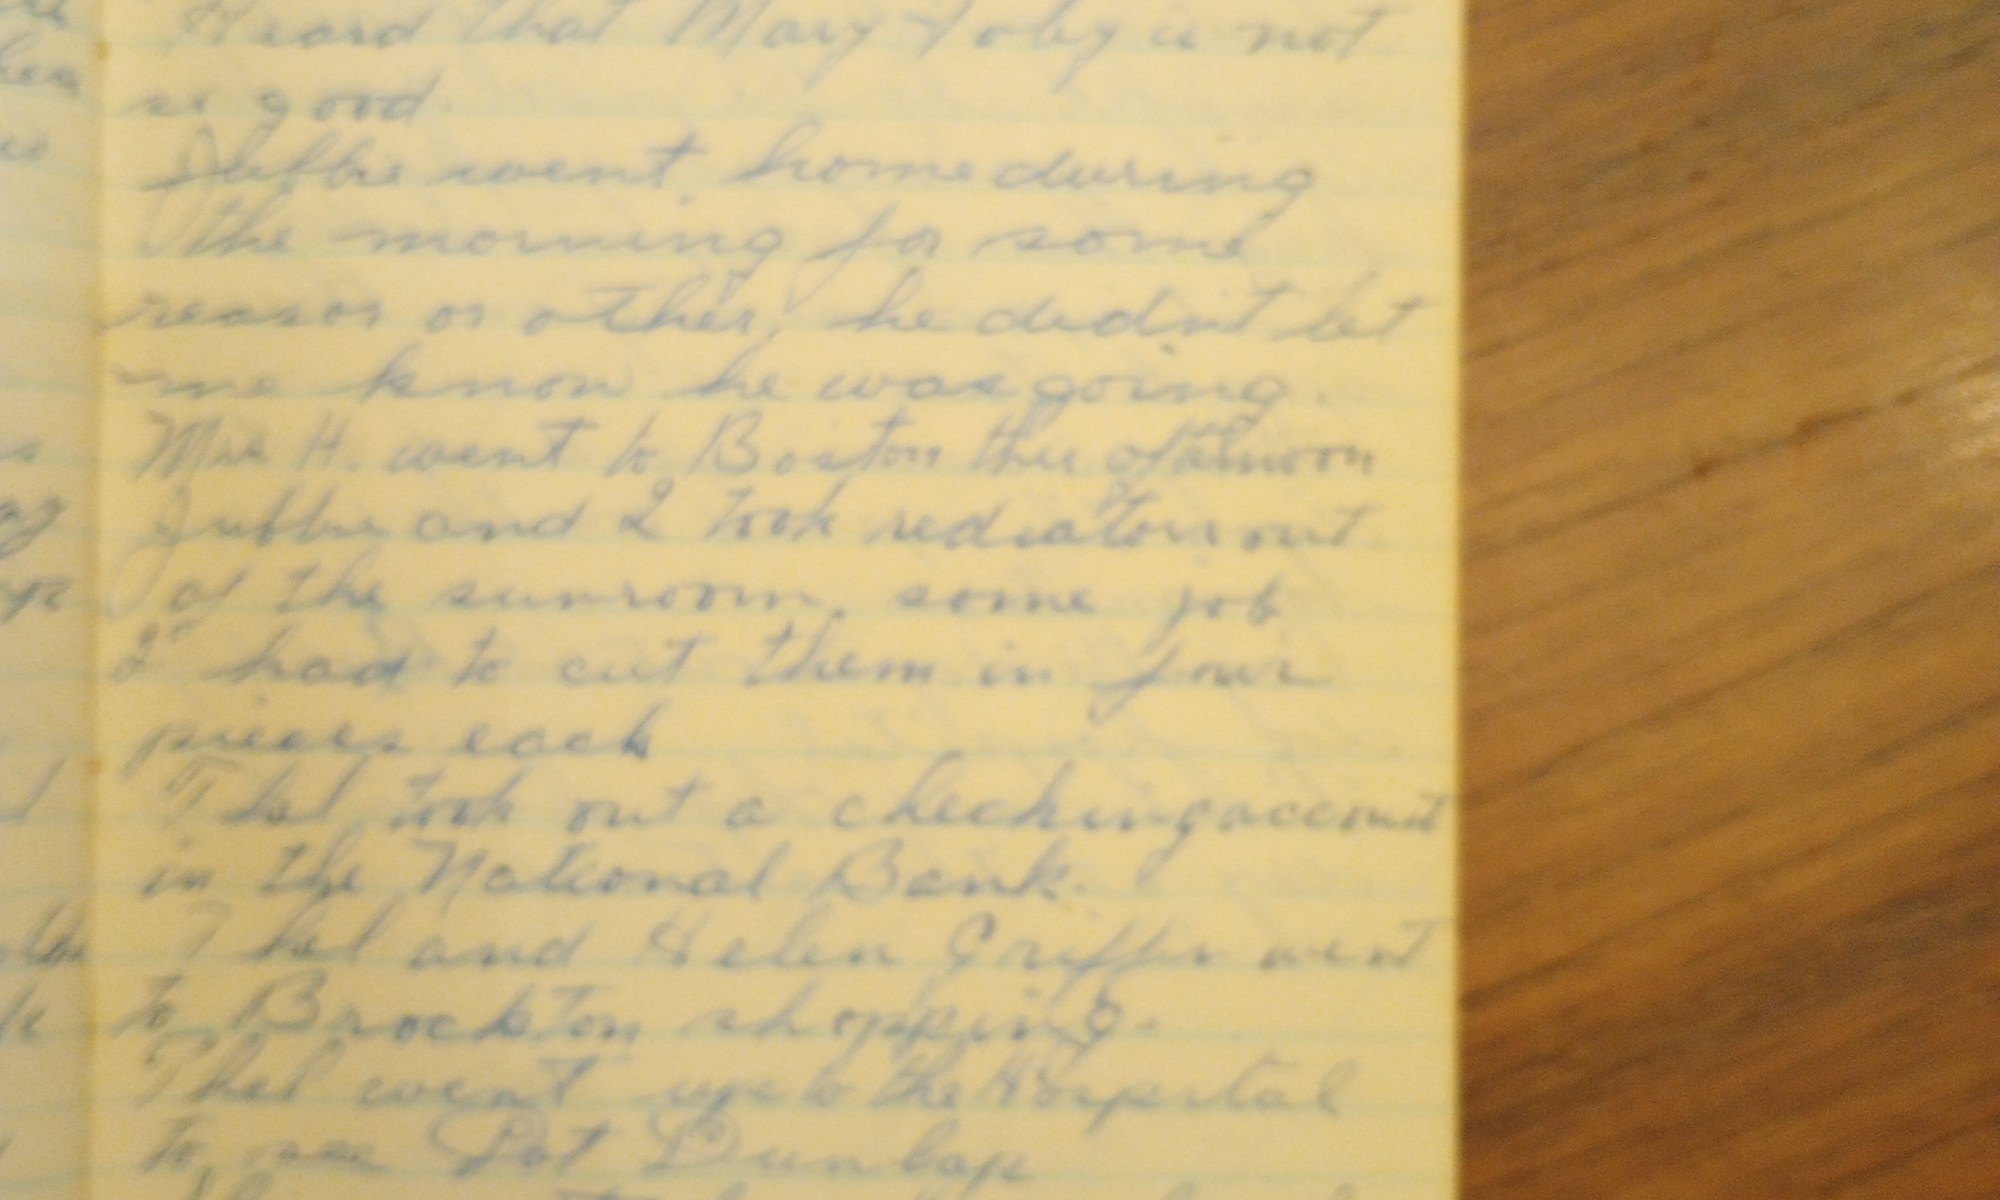 Heard that Mary Toby is not
so good.
Jubbie went home during
the morning for some
reason or other, he didn't let
me know he was going.
Mrs H. went to Boston this afternoon
Jubbie and I took rediators out
of the sunroom, some job
I had to cut them in four
pieces each
Thel took out a checking account
in the National Bank.
Thel and Helen Griffin went
to Brockton shopping.
Thel went up to the Hospital
to see Dot Dunlap